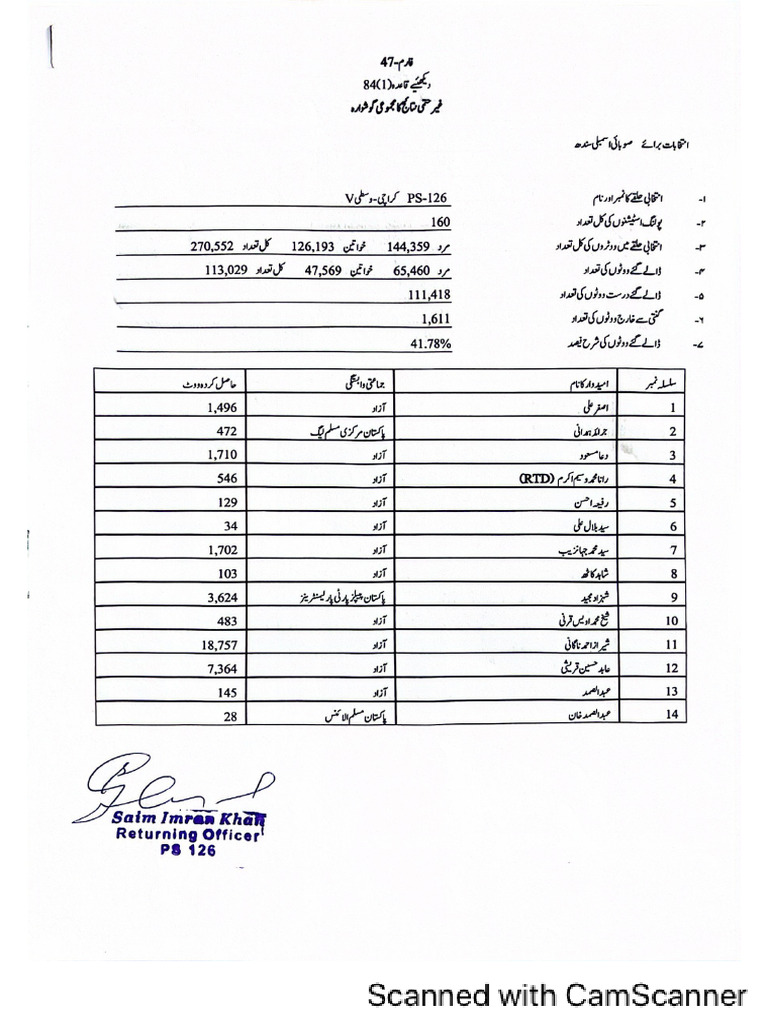 فارم-47
دیکھئیے قاعدہ 84(1)
غیر حتمی نتائج کا مجموعی گوشوارہ
انتخابات برائے صوبائی اسمبلی سندھ
۱- انتخابی حلقے کا نمبر اور نام PS-126 کراچی-وسطی V
۲- پولنگ اسٹیشنوں کی کل تعداد 160
۳- انتخابی حلقے میں ووٹروں کی کل تعداد مرد 144,359 خواتین 126,193 کل تعداد 270,552
۴- ڈالے گئے ووٹوں کی تعداد مرد 65,460 خواتین 47,569 کل تعداد 113,029
۵- ڈالے گئے درست ووٹوں کی تعداد 111,418
۶- گنتی سے خارج ووٹوں کی تعداد 1,611
۷- ڈالے گئے ووٹوں کی شرح فیصد 41.78%
سلسلہ نمبر امیدوار کا نام جماعتی وابستگی حاصل کردہ ووٹ
1 اصغر علی آزاد 1,496
2 جرالڈ ہمدانی پاکستان مرکزی مسلم لیگ 472
3 دعا مسعود آزاد 1,710
4 رانا محمد وسیم اکرم (RTD) آزاد 546
5 رفیعہ احسن آزاد 129
6 سید بلال علی آزاد 34
7 سید محمد جہانزیب آزاد 1,702
8 شاہد کاٹھ آزاد 103
9 شہزاد مجید پاکستان پیپلز پارٹی پارلیمنٹرینز 3,624
10 شیخ محمد اویس قرنی آزاد 483
11 شیراز احمد ناگانی آزاد 18,757
12 عابد حسین قریشی آزاد 7,364
13 عبدالصمد آزاد 145
14 عبدالصمد خان پاکستان مسلم الائنس 28
Saim Imran Khan
Returning Officer
PS 126
Scanned with CamScanner